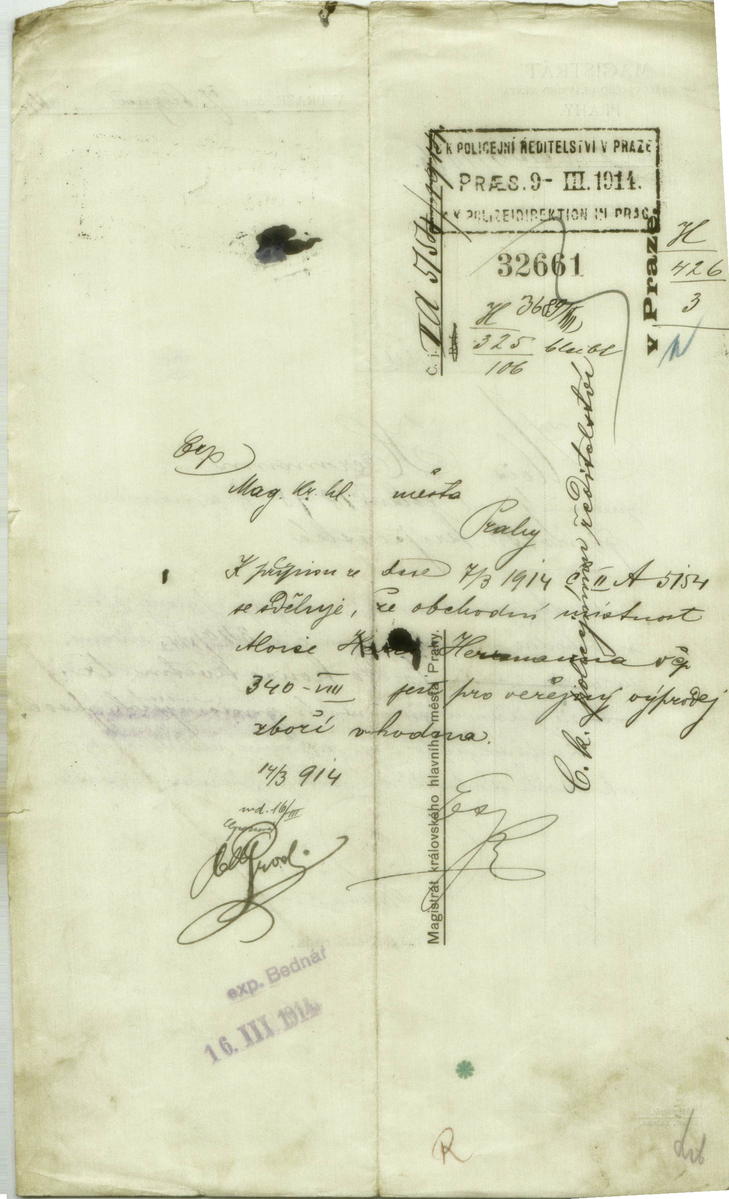 K POLICEJNÍ ŘEDITELSTVÍ V PRAZE
PRÆS. 9- III. 1914.
K POLIZEIDIREKTION IN PRAG
32661
H
426
3
H 3689/III
325
106
Č. j. II A 5154/1914
v Praze.
C. k. policejnímu ředitelství
Magistrát královského hlavního města Prahy.
Exp
Mag. kr. hl. města
Prahy
K přípisu ze dne 7/3 1914 č II A 5154
se sděluje, že obchodní místnost
Aloise Herrmanna čp
340-VIII jest pro veřejný výprodej
zboží vhodna.
14/3 914
16/III
exp. Bednář
16. III 1914
R